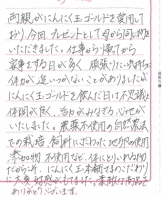 両親がにんにく玉ゴールドを愛用して
おり、今回プレゼントとして母から同じ物を
いただきました。仕事から帰ってから
家事をする日が多く、頑張りたい気持ちに
体がついていかないことがありましたが
にんにく玉ゴールドを飲んだ日は不思議と
体調が良く、活力がみなぎる心地がして
いたしました。農薬不使用の自然農法
での栽培、飼料にこだわった地鶏の使用
添加物不使用など、体によい物だ
からこそ、にんにく玉本舗さまのこだわり
に大変好感がもてました。素敵な商品を
ありがとうございます。